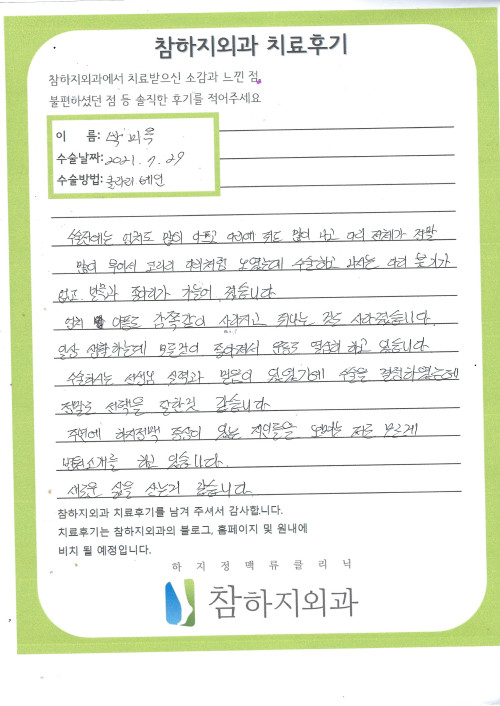 참하지외과 치료후기
참하지외과에서 치료받으신 소감과 느낀 점,
불편하셨던 점 등 솔직한 후기를 적어주세요
이 름:
수술날짜: 2021. 7. 29
수술방법: 클라리베인
수술전에는 엄지도 많이 아프고 다리에 쥐도 많이 나고 다리 전체가 정말
많이 부어서 코끼리 다리처럼 보였는데 수술하고 나서는 다리 붓기가
없고 발목과 종아리가 가늘어 졌습니다
엄지 발 아픔도 감쪽같이 사라지고 쥐나는 것도 사라졌습니다.
일상 생활하는데 모든것이 좋아져서 운동도 열심히 하고 있습니다
수술하시는 선생님 실력과 믿음이 있었기에 수술을 결정하였는데
정말로 선택을 잘한것 같습니다
주변에 하지정맥 증상이 있는 지인들을 보면 저도 모르게
병원소개를 하고 있습니다.
새로운 삶을 사는거 같습니다.
참하지외과 치료후기를 남겨 주셔서 감사합니다.
치료후기는 참하지외과의 블로그, 홈페이지 및 원내에
비치 될 예정입니다.
하지정맥류클리닉
참하지외과